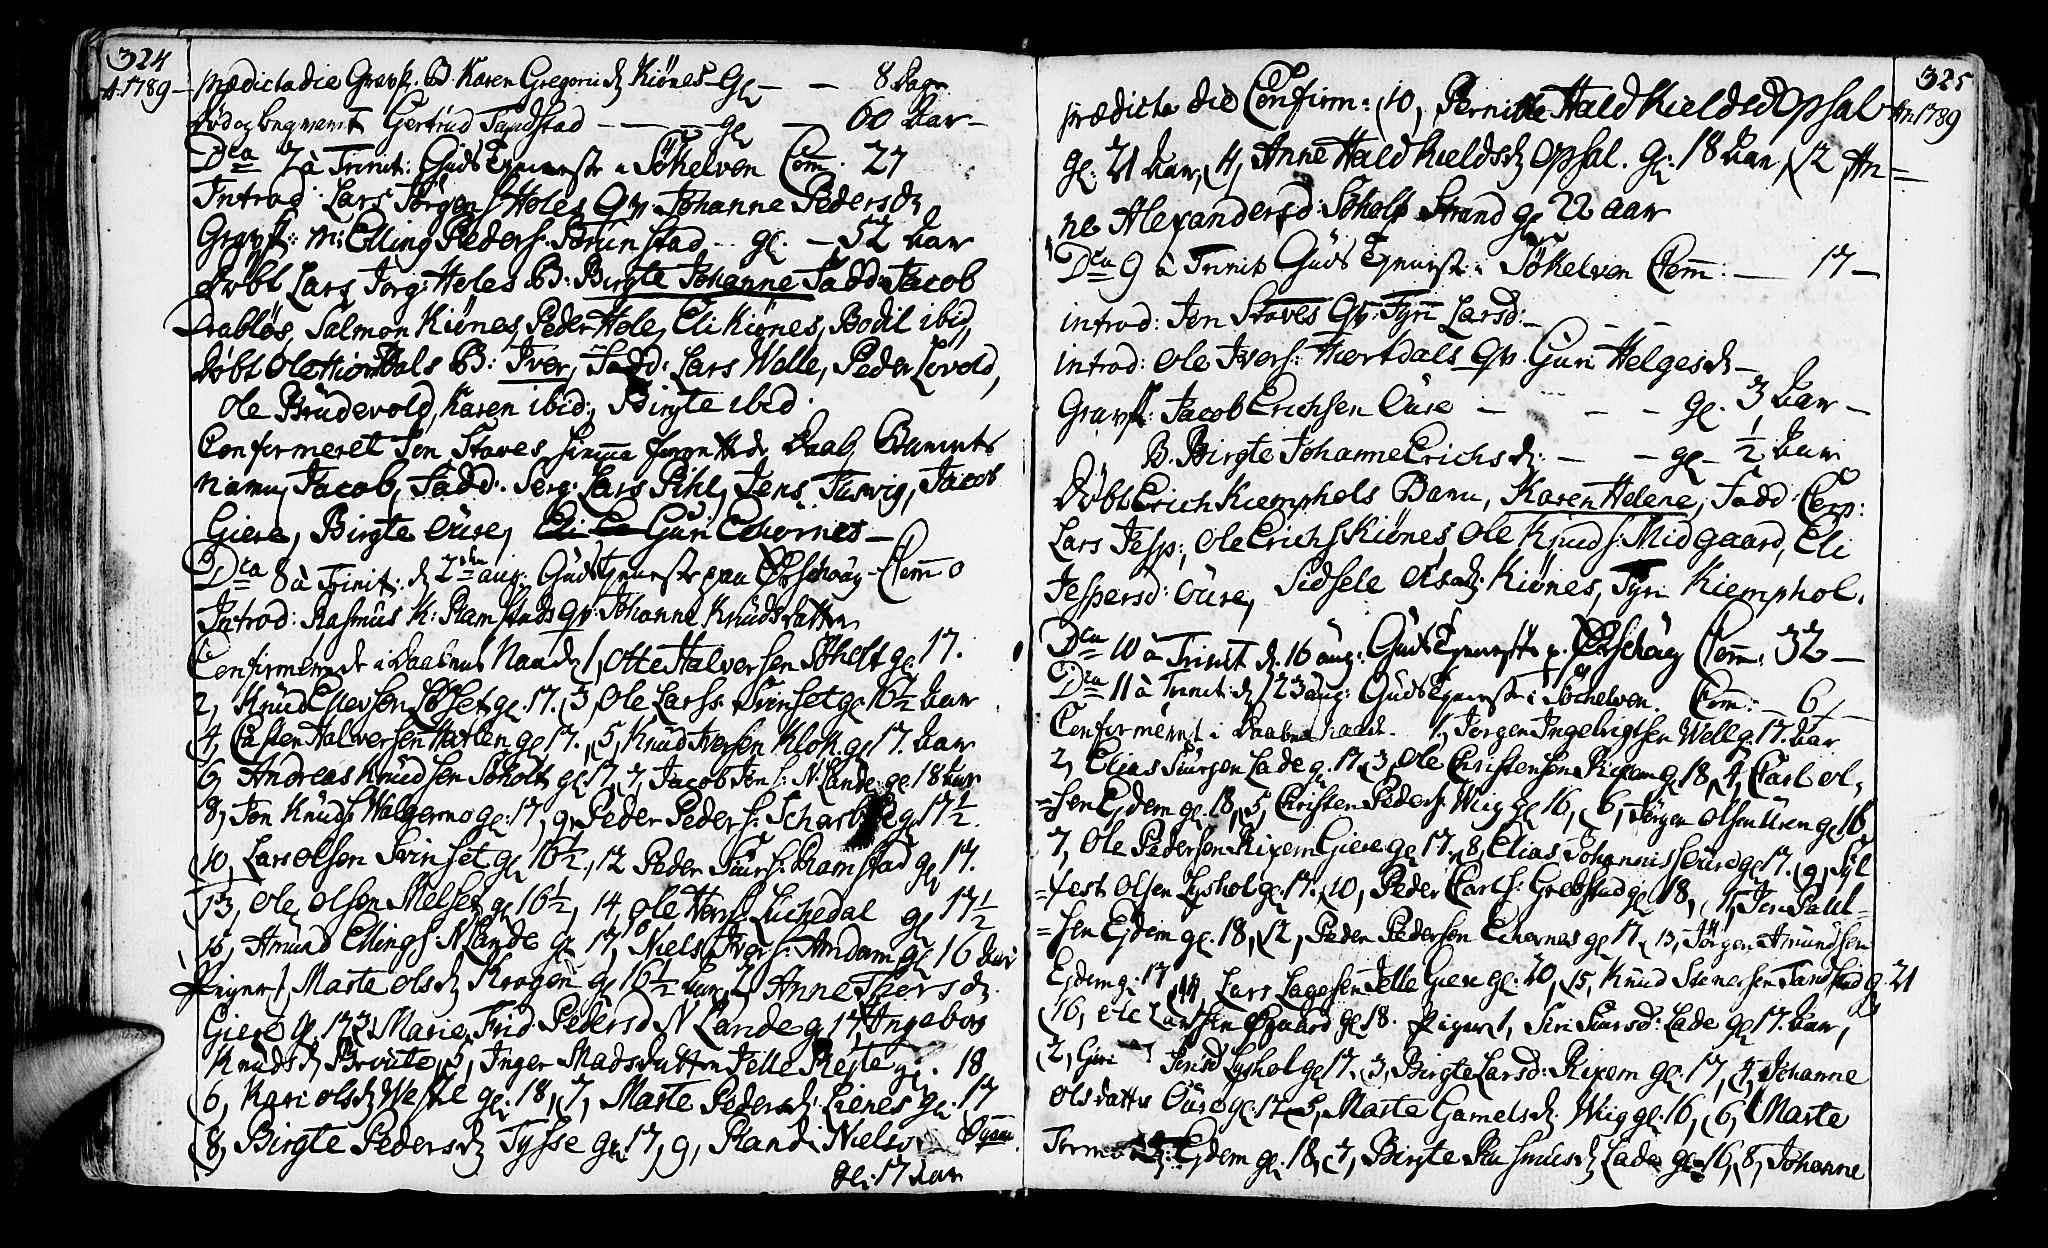 324
A. 1789
prædicta die Gravf. B. Karen Gregorii D. Kiønes Gl — — 8 Dage
Død og Gertrud Tandstad — — — gl — 60 Aar —
Dca 7 à Trinit: Guds Tieneste i Søkelven Com. 27
Introd: Lars Jørgens Holes Qv. Johanne Pedersd.
Gravf: m: Elling Peders. Brunstad — gl. — 52 Aar
Døbt Lars Jorg: Holes B: Birgte Johanne Fadd: Jacob
Drabløs, Salmon Kiønes, Peder Hole, Eli Kiønes, Bodil ibid,
Døbt Ole Hiortdals B: Iver, Fadd: Lars Welle, Peder Levold,
Ole Brudevold, Karen ibid:, Birgte ibid.
Confirmeret Jon Staves hiemme Daab, Barnets
Navn Jacob, Fadd: Serg: Lars Pihl, Jens Tuswig, Jacob
Giere, Birgte Aure, Guri Echornes —
Dca 8 à Trinit: d. 2den aug: Guds Tieneste paa Ørschoug — Com 0
Introd: Rasmus K: Ramstads qv: Johanne Knudsdatter
Confirmerede i Daabens Naade 1, Otte Halversen Søholt gl 17.
2, Knud Ellevsen Løset gl. 17. 3, Ole Larss. Svinset gl 16½ Aar
4, Casten Halversen Hatlen gl 17. 5, Knud Iversen Klok. gl 17. Aar
6, Andreas Knudsen Søholt gl. 17, 7, Jacob Jens: N. Lande gl 18 Aar
8, Jon Knuds. Walgermo gl: 17, 9, Peder Peders: gl 17½.
10, Lars Olsen Svinset gl 16½, 12 Peder Siurs: Ramstad gl 17.
13, Ole Olsen Melset gl 16½, 14, Ole Ivers. Luchedal gl 17½
15, Amund Ellings N Lande gl 17, 16 Niels Ivers: Amdam gl 16 Aar
Piger 1, Marte Olsd. Kragen gl 16½ Aar 2, Anne Thersd.
Giere gl 17 3, Marie Frid Pedersd. N Lande gl 17 Ingebor
Knudsd. Brute, 5, Inger Madsdatter Jelle Rejte gl. 18
6, Kari Olsd. Westre gl. 18, 7, Marte Pedersd. Lienes gl. 17
8, Birgte Pedersd. Tysse gl. 17, 9, Randi Nielsd.
gl: 17 Aar
325
An. 1789
prædicta die Confirm: 10, Pernille Hald Kieldsd Opsal
gl: 21 Aar, 4, Anne Hald Kieldsd. Opsal. gl: 18 Aar 12 An-
ne Alexandersd: Søholt Strand gl 22 aar
Dca 9 à Trinit Guds Tieneste i Søkelven Com: — 17 —
introd: Jon Staves Qv. Tyri Larsd: — — —
introd: Ole Ivers: Hiortdals Qv. Guri Helgesd —
Gravf: Jacob Erichsen Aure — — — gl. 3 Aar —
B. Birgte Johanne Erichsd: — — gl — ½ Aar
Døbt Erich Kiemphols Barn, Karen Helene, Fadd: Corp:
Lars Jesp:, Ole Erichs Kiønes, Ole Knuds: Midgaard, Eli
Jespersd: Aure, Sidsele Olsd: Kiønes, Tyri Kiemphol.
Dca 10 à Trinit d. 16 aug: Guds Tieneste p. Ørschoug Com: 32 —
Dca 11 à Trinit: d. 23 aug: Guds Tieneste i Søchelven. Com: — 6 —
Confirmeret i Daabens naade. 1, Jørgen Ingebrigtsen Welle g. 17. Aar
2, Elias Siursen Lade g. 17. 3, Ole Christensen Rixem gl 18, 4, Carl Ol-
=sen Ejdem gl. 18, 5, Christen Peders. Wiig gl 16, 6, Jørgen Olsen Uren gl 16
7, Ole Pedersen Rixem Giere gl 17. 8, Elias Johanniss Aure gl 17. 9, Syl
=fest Olsen Lysholg. 17. 10, Peder Carls: Grebstad gl 18, 11, Jon Paul-
=sen Ejdem gl. 18, 12, Peder Pedersen Echornes gl 17. 13, Jørgen Amundsen
Ejdem g. 17 14, Lars Lagesen Jelle Giere gl: 20, 15, Knud Steversen Tandstad g. 21
16, Ole Larssen Øgaard gl 18. Piger 1, Siri Siursd: Lade gl 17. Aar,
2, Guri Lyshol gl 17. 3, Birgte Larsd: Rixem gl. 17, 4, Johanne
Olsdatter Aure gl. 17 5, Marte Gamelsd. Wiig gl. 16, 6, Marte
Ejdem gl. 18, 7, Birgte Rasmusd. Lade gl 16, 8, Johanne